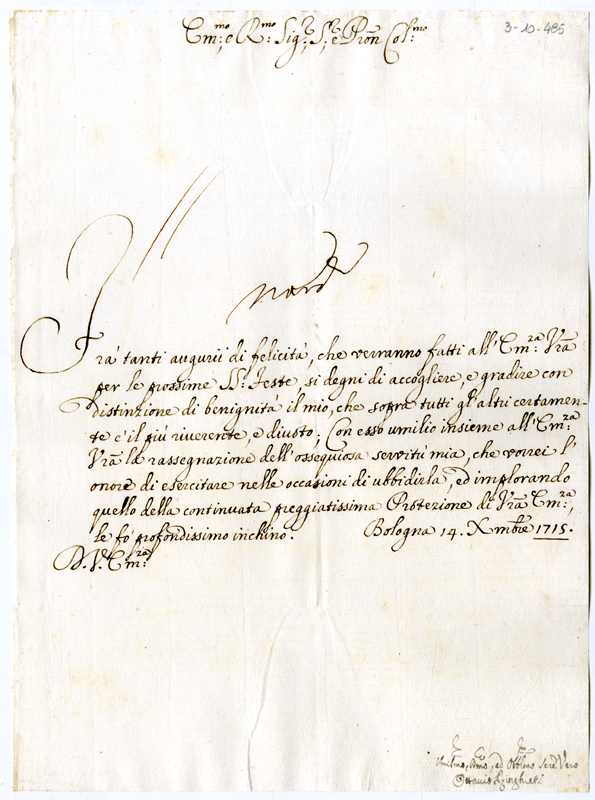 Em:mo e R:mo Sig:r, S:r, e Prōn Col:mo
3-10-485
Frà tanti augurii di felicità, che verranno fatti all'Em:za Vrā
per le prossime SS:te Feste, si degni di accogliere, e gradire con
distinzione di benignità il mio, che sopra tutti gl'altri certamen-
te è il più riverente, e divoto; Con esso umilio insieme all'Em:za
Vrā la rassegnazione dell'ossequiosa servitù mia, che vorrei l'
onore di esercitare nelle occasioni di ubbidirla, ed implorando
quello della continuata preggiatissima Protezione di Vrā Em:za,
le fò profondissimo inchino. Bologna 14. Xmbre 1715.
D. V. Em:za
Umilmo, Dmo, ed Obblmo Serv Vero
Ottavio